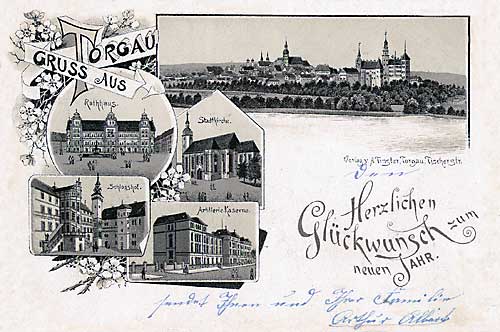 GRUSS AUS
TORGAU
Rathhaus.
Stadtkirche.
Schlosshof.
Artillerie Kaserne.
Verlag v. A. Forster, Torgau, Fischerstr.
Herzlichen
Glückwunsch zum
neuen JAHR.
sendet Ihnen und Ihrer Familie
Arthur